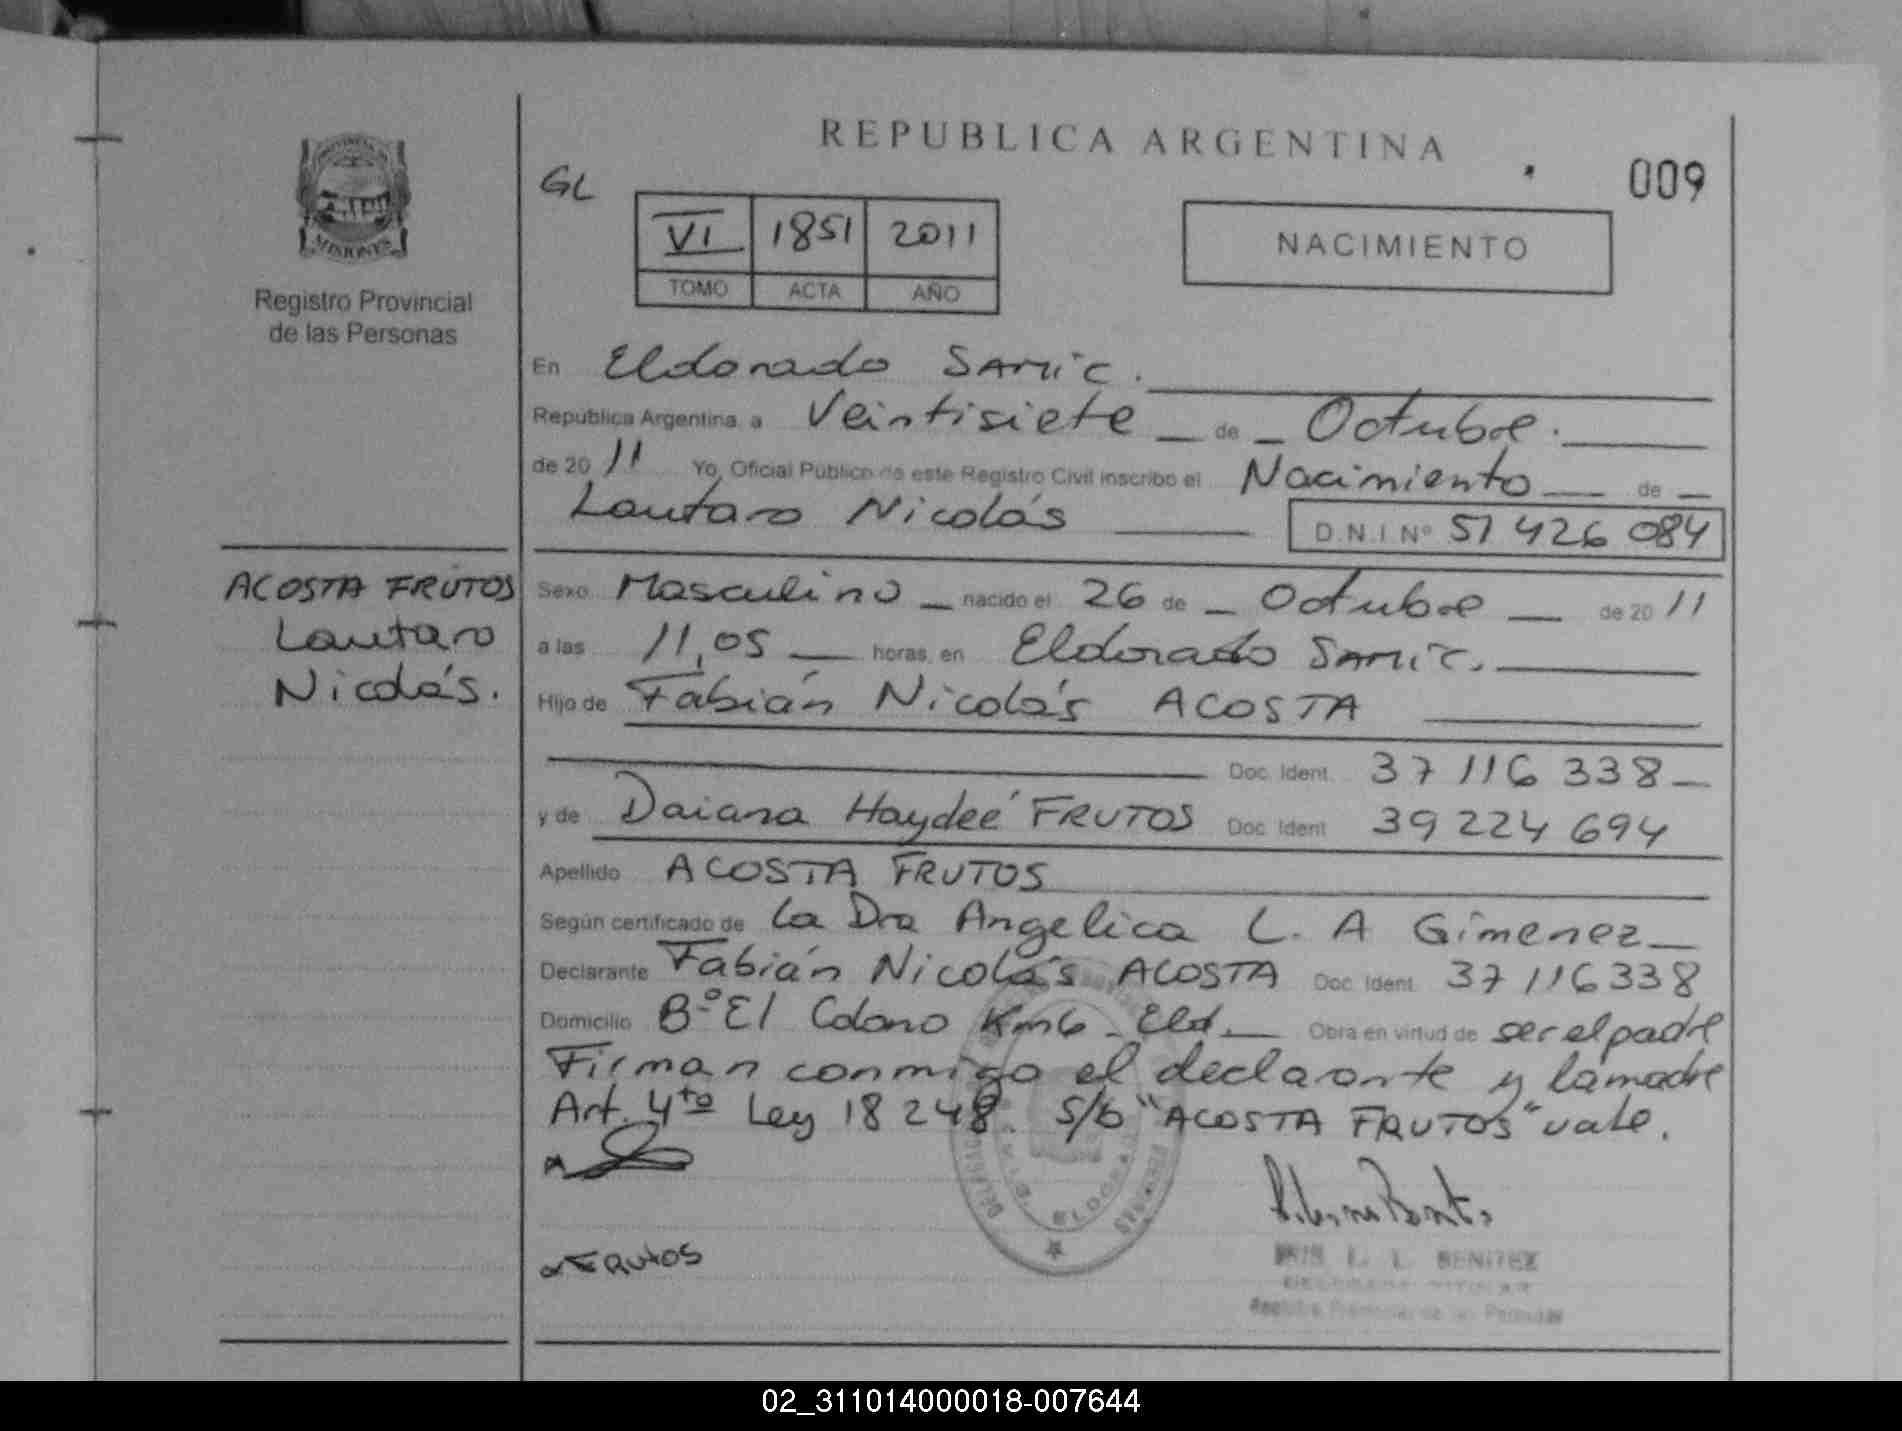 REPUBLICA ARGENTINA
009
GL
VI 1851 2011
TOMO ACTA AÑO
NACIMIENTO
MISIONES
Registro Provincial
de las Personas
En Eldorado SAMIC.
República Argentina, a Veintisiete de Octubre.
de 20 11 Yo, Oficial Público de este Registro Civil inscribo el Nacimiento de
Lautaro Nicolás D.N.I Nº 51 426 084
ACOSTA FRUTOS
Lautaro
Nicolás.
Sexo Masculino nacido el 26 de Octubre de 20 11
a las 11,05 horas, en Eldorado SAMIC.
Hijo de Fabián Nicolás ACOSTA
Doc. Ident. 37 116 338
y de Daiana Haydeé FRUTOS Doc. Ident. 39 224 694
Apellido ACOSTA FRUTOS
Según certificado de la Dra Angelica L. A Gimenez
Declarante Fabián Nicolás ACOSTA Doc. Ident. 37 116 338
Domicilio Bº El Colono Km6 - Eld. Obra en virtud de ser el padre
Firman conmigo el declarante y la madre
Art. 4to Ley 18 248. S/b "ACOSTA FRUTOS" vale.
FRUTOS
L. L. BENITEZ
Registro Provincial de las Personas
02_311014000018-007644